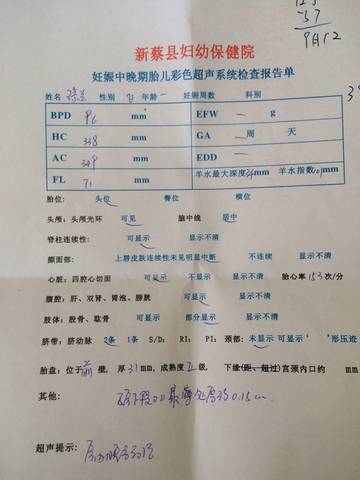 9月12
新蔡县妇幼保健院
妊娠中晚期胎儿彩色超声系统检查报告单
姓名 性别 女 年龄 一 妊娠周数 科别
BPD 96 mm EFW — g
HC 338 mm GA — 周 天
AC 349 mm EDD —
FL 71 mm 羊水最大深度 mm 羊水指数 mm
胎位: 头位 臀位 横位
头颅: 头颅光环 可见 脑中线 居中
脊柱连续性: 可显示 显示不清
颜面部: 上唇皮肤连续性未见明显中断 不连续 显示不清
心脏: 四腔心切面 可显示 不显示 显示不清 胎心率 153 次/分
腹腔: 肝、双肾、胃泡、膀胱 可显示 显示不清
肢体: 股骨、肱骨 可显示 部分显示 显示不清
脐带: 脐动脉 2条 1条 S/D: RI: PI: 颈部: 未显示 可显示 " "形压迹
胎盘: 位于 前 壁, 厚 31 mm, 成熟度 II 级, 下缘(距、超过)宫颈内口约 mm
其他: 厚约0.15cm
超声提示: